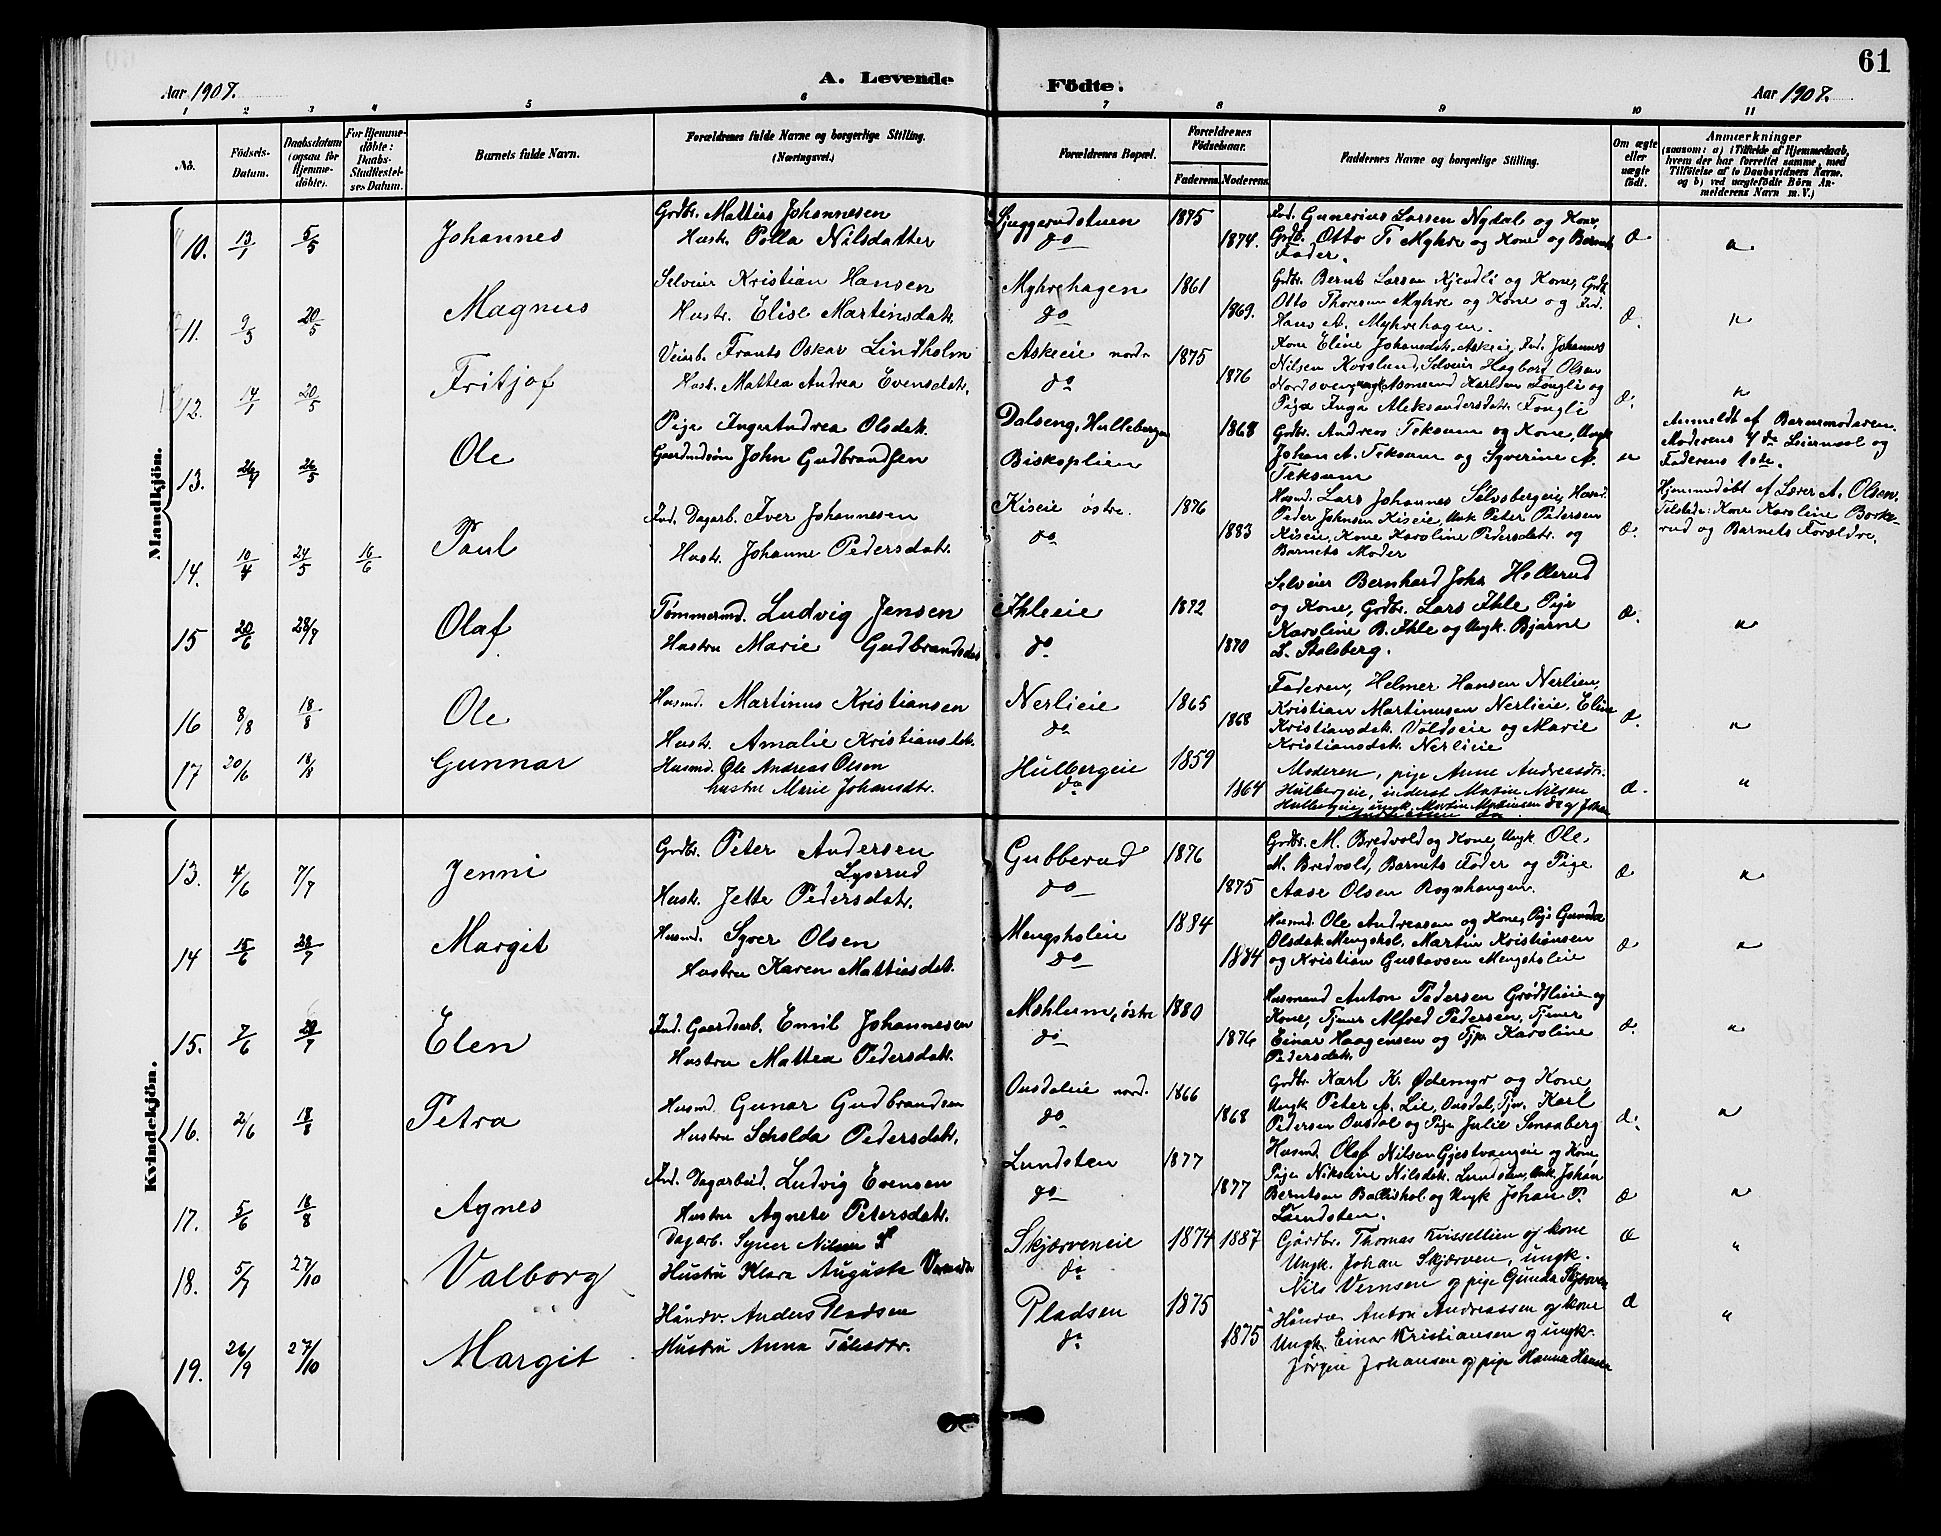 61
Aar 1907. A. Levende Födte. Aar 1907.
1 2 3 4 5 6 7 8 9 10 11
No.
Födsels-Datum.
Daabsdatum (ogsaa for Hjemmedöbte).
For Hjemmedöbte: Daabs-Stadfæstelses Datum.
Barnets fulde Navn.
Forældrenes fulde Navne og borgerlige Stilling. (Næringsvei.)
Forældrenes Bopæl.
Forældrenes Födselsaar.
Faderens. Moderens.
Faddernes Navne og borgerlige Stilling.
Om ægte eller uægte födt.
Anmærkninger
(saasom: a) i Tilfælde af Hjemmedaab, hvem der har forrettet samme, med Tilföielse af to Daabsvidners Navne, og b) ved uægtefödte Börn Anmelderens Navn m. V.)
Mandkjön.
10. 13/1 5/5 Johannes
Grdbr. Mattius Johannesen
Hustr. Polla Nilsdatter
do
1875 1874.
Ind. Gunerius Larsen Nydal og Kone,
Grdb. Otto T. Myhre og Kone og Barnets
Fader.
Æ "
11. 9/3 20/5 Magnus
Selveier Kristian Hansen
Hustr. Elise Martinsdatr.
Myhrehagen
do
1861 1869.
Grdbr. Bernt Larsen Kjendli og Kone, Grdb.
Otto Thoresen Myhre og Kone og Ind.
Hans A. Myhrehagen.
Æ. "
12. 14/1 20/5 Fritjof
Veiarb. Frants Oskar Lindholm
Hust. Mattea Andrea Evensdatr.
Askeie nordr
do
1875 1876
Kone Eline Johansdatr. Askeie, Ind. Johannes
Nilsen Korslund, Selveier Hagbard Olsen
Pige Inga Aleksandersdatr. Fongli
Æ. "
13. 26/5 Ole
Pige Inger Andrea Olsdatr.
Gaardmdsøn John Gudbrandsen
Dalseng, Hullebergen
Biskoplien
1868
Grdbr. Andreas Teksum og Kone, Ungk
Johan A. Teksum og Syverine A.
Teksum
u
Anmeldt af Barnemoderen.
Moderens 4de Leiermaal og
Faderens 1ste.
14. 10/4 24/5 16/6 Paul
Ind. Dagarb. Iver Johannesen
Hustr. Johanne Pedersdatr.
Kiseie østre.
do
1876 1883
Husmd. Lars Johannes Sölvsbergeie, Husmd.
Peder Johnsen Kiseie, Ungk Peter Pedersen
Kiseie, Kone Karoline Pedersdatr. og
Barnets Moder
Æ.
Hjemmedöbt af Lærer A. Olsen.
Tilstede: Kone Karoline Borkerud og Barnets Forældre.
15 20/6 28/7 Olaf
Tømmermd. Ludvig Jensen
Hustru Marie Gudbrandsdatr
Ihleeie
do
1872 1870
Selveier Bernhard Johs Hollerud
og Kone, Grdbr. Lars Ihle Pige
Karoline B. Ihle og Ungk. Bjarne
L. Stalsberg.
Æ. "
16 8/8 18/8 Ole
Husmd. Martinus Kristiansen
Hustr. Amalie Kristiansdtr.
Nerlieie
do
1865 1868
Faderen, Helmer Hansen Nerlien,
Kristian Martinusen Nerlieie, Eline
Kristiansdatr. Voldseie og Marie
Kristiansdatr. Nerlieie
Æ. "
17 20/6 18/8 Gunnar
Husmd. Ole Andreas Olsen
hustru Marie Johansdtr.
Hulbergeie
do
1859 1864
Moderen, pige Anne Andreasdtr.
Hulbergeie, inderst Martin Nilsen
Hulbergeie, ungk. Martin Martinsen do og Johan
Æ. "
Kvindekjön.
13. 4/6 7/7 Jenni
Grdbr. Peter Andersen
Lysrud
Hustr. Jette Pedersdatr.
Gubberud
do
1876 1875
Grdbr. M. Bredvold og Kone, Ungk. Ole
M. Bredvold, Barnets Fader og Pige
Aase Olsen Rognhaugen.
Æ "
14 15/6 28/7 Margit
Husmd. Syver Olsen
Hustru Karen Mattiasdatr.
Mengsholeie
do
1884 1884
Husmd. Ole Andreassen og Kone, Pige Gunda
Olsdatr. Mengshol, Martin Kristiansen
og Kristian Gustavsen Mengsholeie
Æ "
15. 7/6 28/7 Elen
Ind. Gaardsarb. Emil Johannesen
Hustru Mattea Pedersdatr.
Mohlum, östre
do
1880 1876
Husmand Anton Pedersen Grøtslieie og
Kone, Tjener Alfred Pedersen, Tjener
Einar Haagensen og Tjp. Karoline
Pedersdatr.
Æ. "
16. 2/6 18/8 Petra
Husmd. Gunar Gudbrandsen
Hustru Pedersdatr.
Ousdaleie nord.
do
1866 1868
Grdbr. Karl K. Ødemyr og Kone,
Ungk Peter A. Lie, Ousdal, Tjen. Karl
Pedersen Ousdal og Pige Julie
Æ. "
17. 5/6 18/8 Agnes
Ind. Dagarbeid. Ludvig Evensen
Hustru Agnete Petersdatr.
Lundsten
do
1877 1877
Husmd. Olaf Nilsen Gjestvangeie og Kone,
Pige Nikoline Nilsdatr. Lundsten, Ungk. Johan
Berntsen Ballishol og Ungk Johan P.
Lundsten.
Æ "
18. 5/7 27/10 Valborg
Dagarb. Syver Nilsen
Hustru Klara Auguste
Skjærveneie
do
1874 1887
Gårdbr. Thomas Kvissellien og kone
Ungk. Johan Skjærven, ungk.
Nils Vernsen og pige Gunda Skjærven
Æ "
19. 26/9 27/10 Margit
Håndv. Anders Pladsen
Hustru Anna
Pladsen
do
1875 1875
Håndv. Anton Andreassen og kone
Ungk. Einar Kristiansen og ungk.
Jörgen Johansen og pige Hanna Hansen
Æ "